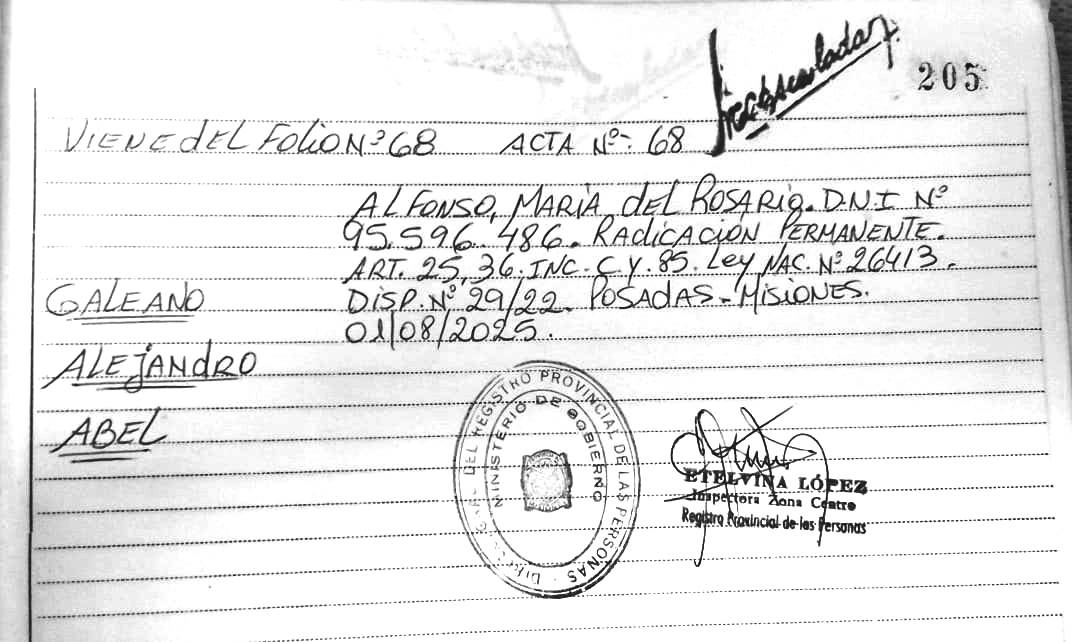 205
VIENE DEL FOLIO Nº 68 ACTA Nº: 68
ALFONSO, MARIA DEL ROSARIO. D.N.I Nº
95.596.486. RADICACIÓN PERMANENTE.
ART. 25, 36. INC. C Y. 85. Ley NAC. Nº 26413.
GALEANO DISP. Nº 29/22. POSADAS - MISIONES.
01/08/2025.
ALEJANDRO
ABEL
DEL REGISTRO PROVINCIAL DE LAS PERSONAS
MINISTERIO DE GOBIERNO
ETELVINA LÓPEZ
Inspectora Zona Centro
Registro Provincial de las Personas